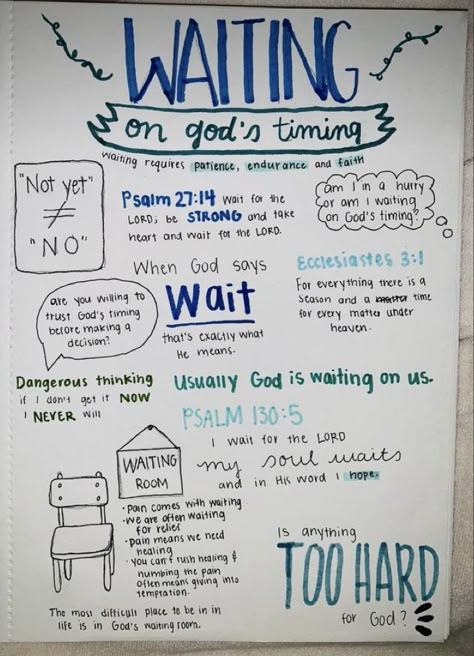 WAITING
on god's timing
Waiting requires patience, endurance and faith
"Not yet"
≠
"NO"
Psalm 27:14 wait for the
LORD; be STRONG and take
heart and wait for the LORD.
am I in a hurry
or am I waiting
on God's timing?
When God says
Wait
that's exactly what
He means.
Ecclesiastes 3:1
For everything there is a
season and a time
for every matter under
heaven.
are you willing to
trust God's timing
before making a
decision?
Dangerous thinking
if I don't get it NOW
I NEVER will
Usually God is waiting on us.
PSALM 130:5
I wait for the LORD
my soul waits
and in His word I hope.
WAITING
ROOM
· Pain comes with waiting
· we are often waiting
for relief
· Pain means we need
healing
· you can't rush healing &
numbing the pain
often means giving into
temptation.
The most difficult place to be in in
life is in God's waiting room.
Is anything
TOO HARD
for God?